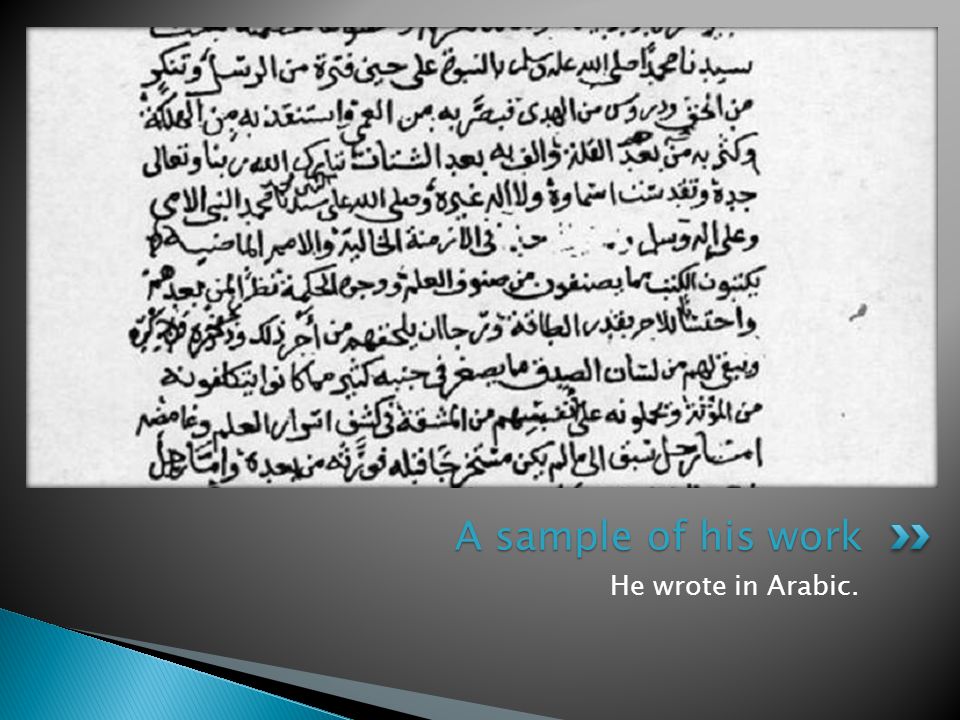 سيدنا محمدا صلى الله عليه وسلم بالنبوة على حين فترة من الرسل وتنكر
من الحق ودروس من الهدى فبصر به من العمى واستنقذ به من الهلكة
وكثر به من بعد القلة والف به بعد الشتات تبارك الله ربنا وتعالى
جده وتقدست اسماوه ولا اله غيره وصلى الله على سيدنا محمد النبى الامى
وعلى اله وسلم فى الازمنة الخالية والامم الماضية
يكتبون الكتب مما يصنفون من صنوف العلم ووجوه الحكمة نظرا لمن بعدهم
واحتسابا للاجر بقدر الطاقة ورجا ان يلحقهم من اجر ذلك وذخره وذكره
ويبقى لهم من لسان الصدق ما يصغر فى جنبه كثير مما كانوا يتكلفونه
من المؤنة ويحملونه على انفسهم من المشقة فى كشف اسرار العلم وغامضه
اما رجل سبق الى ما لم يكن مستخرجا قبله فورثه من بعده واما رجل
A sample of his work
He wrote in Arabic.